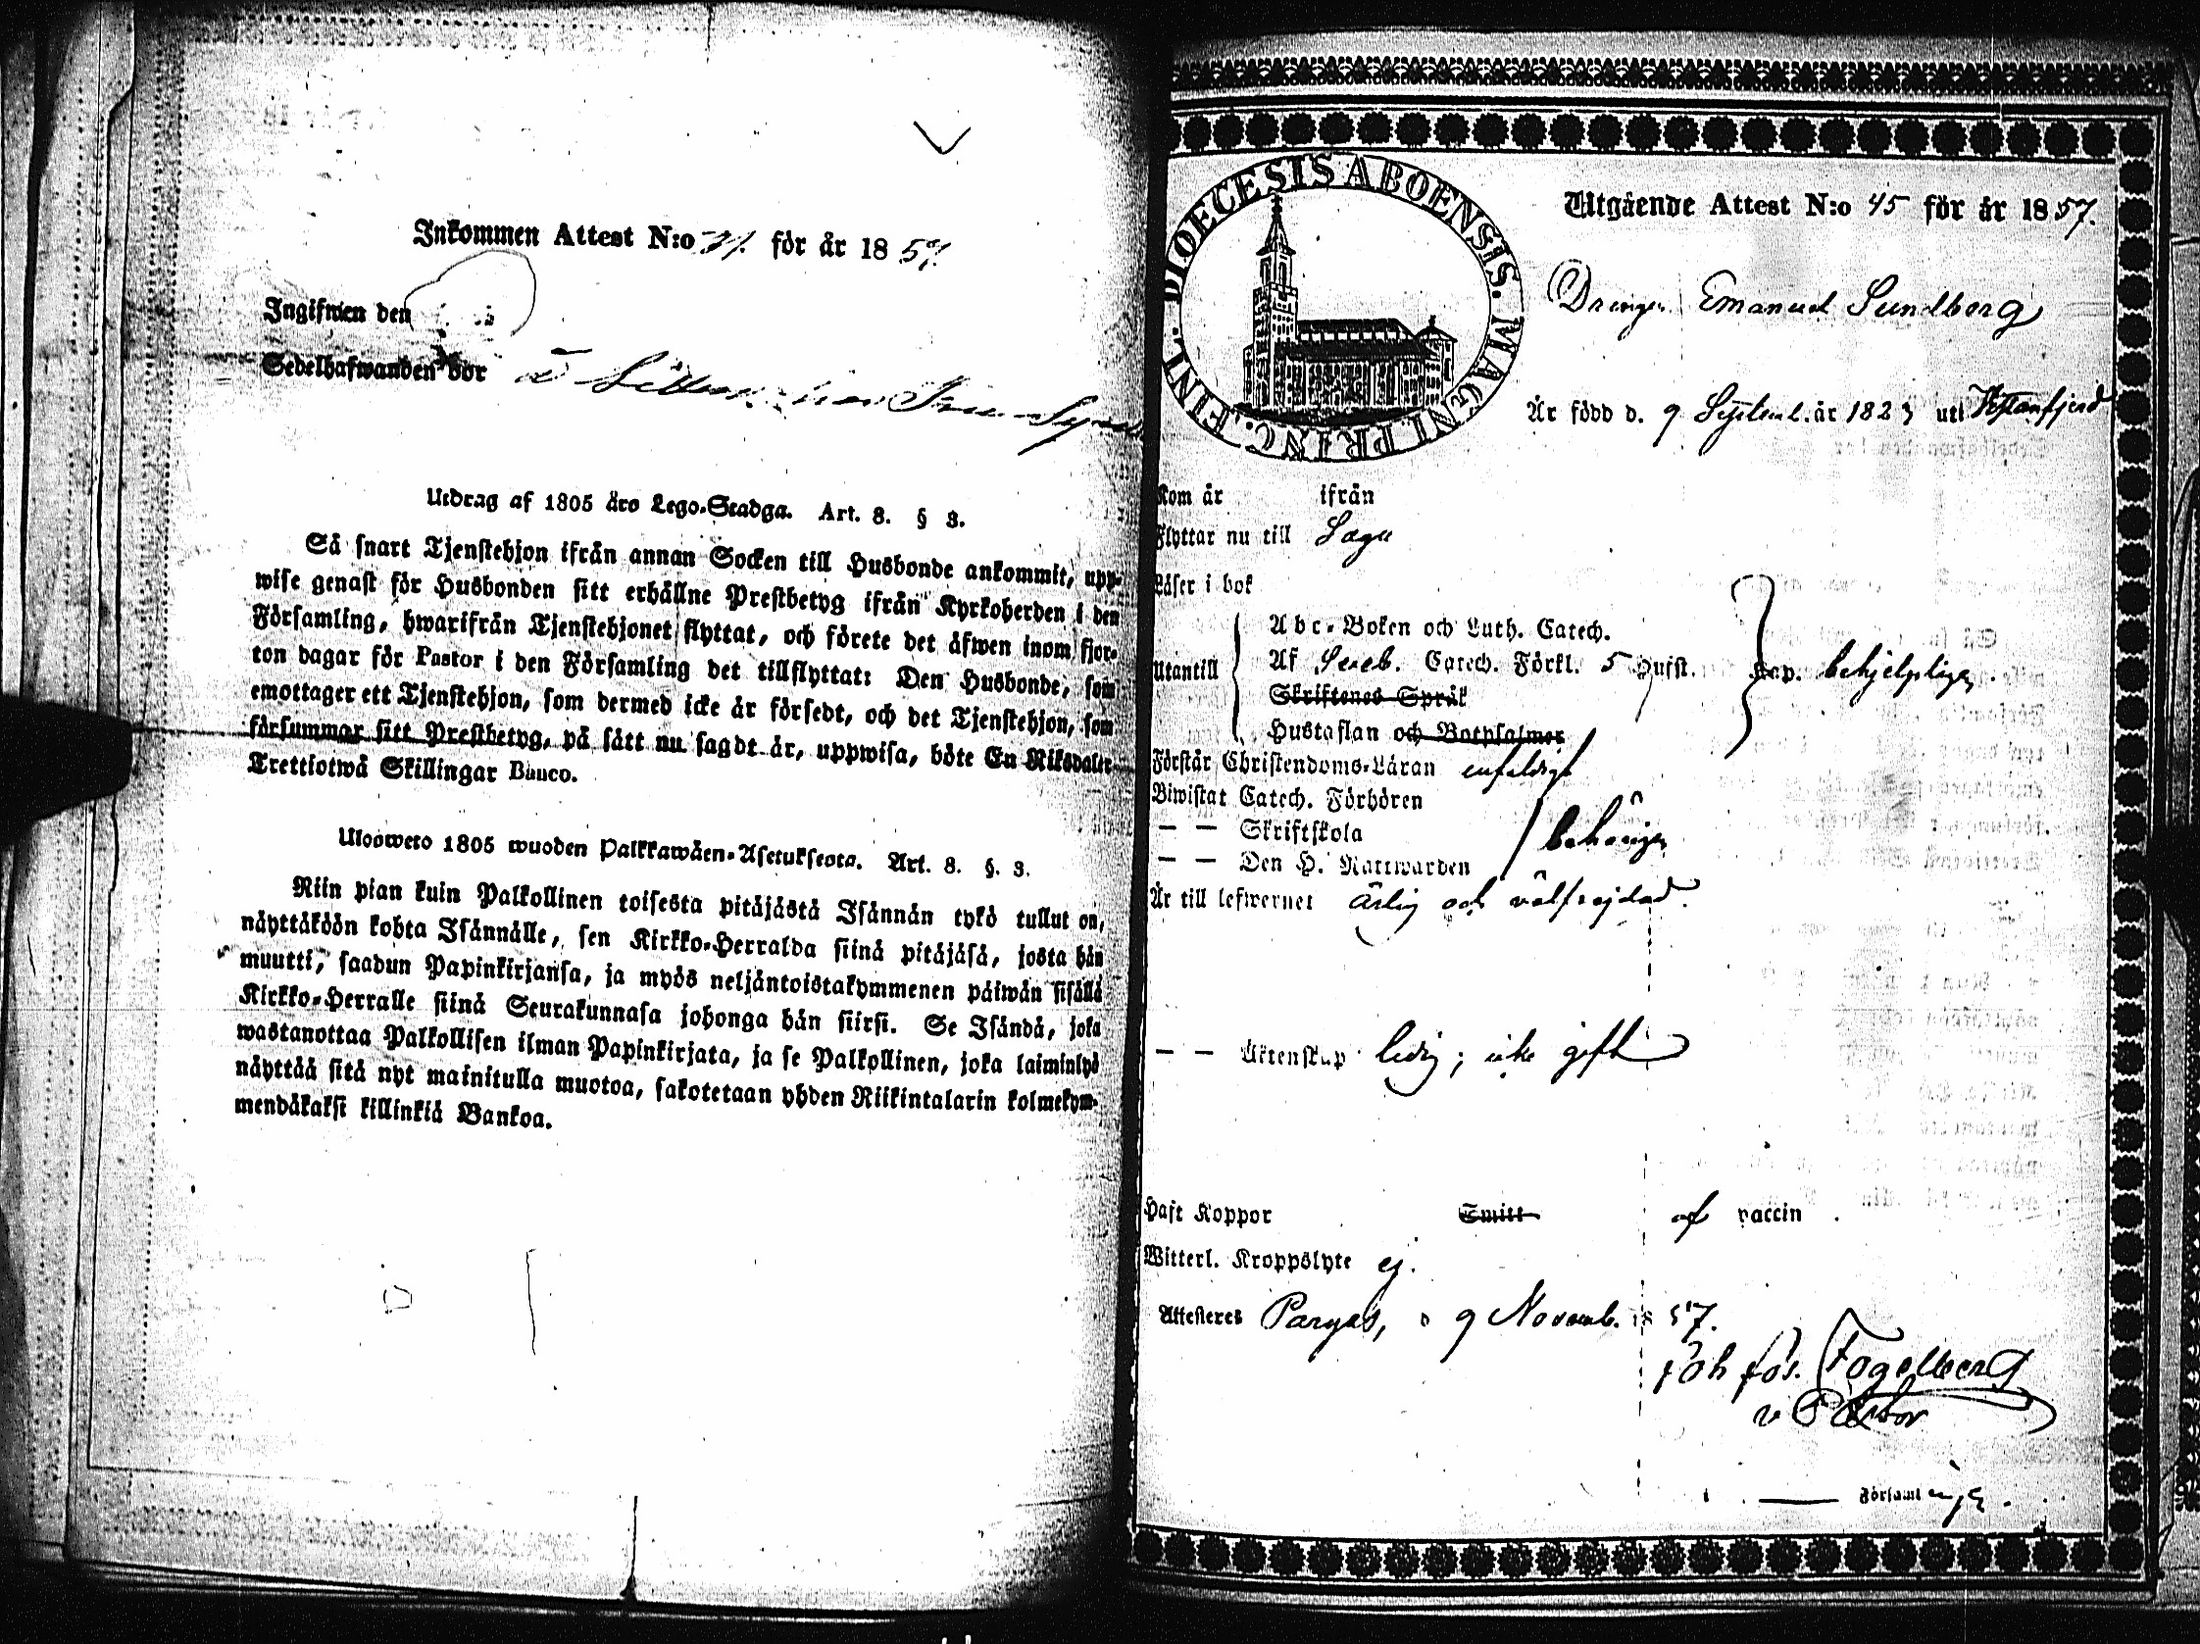 Inkommen Attest N:o för år 18
Ingifwen den
Sedelhafwanden bor
Utdrag af 1805 års Lego-Stadga. Art. 8. § 3.
Så snart Tjenstehjon ifrån annan Socken till Husbonde ankommit, upp-
wise genast för Husbonden sitt erhållne Prestbetyg ifrån Kyrkoherden i den
Församling, hwarifrån Tjenstehjonet flyttat, och förete det äfwen inom fjor-
ton dagar för Pastor i den Församling det tillflyttat: Den Husbonde, som
emottager ett Tjenstehjon, som dermed icke är försedt, och det Tjenstehjon, som
försummar sitt Prestbetyg, på sätt nu sagdt är, uppwisa, böte En Riksdaler
Trettiotwå Skillingar Banco.
Ulosweto 1805 wuoden Palkkawäen-Asetuksesta. Art. 8. §. 3.
Niin pian kuin Palkollinen toisesta pitäjästä Isännän tykö tullut on,
näyttäköön kohta Isännälle, sen Kirkko-Herralda siinä pitäjäsä, josta hän
muutti, saadun Papinkirjansa, ja myös neljäntoistakymmenen päiwän sisällä
Kirkko-Herralle siinä Seurakunnasa johonga hän siirsi. Se Isändä, joka
wastanottaa Palkollisen ilman Papinkirjata, ja se Palkollinen, joka laiminlyö
näyttää sitä nyt mainitulla muotoa, sakotetaan yhden Riikintalarin kolmekym-
mendäkaksi killinkiä Bankoa.
DIOECESIS ABOENSIS. MAGNI. PRINC. FINL.
Utgående Attest N:o 45 för år 1857.
Drengen Emanuel Sundberg
Är född d. 9 Septemb. år 1823 uti
Kom år ifrån
Flyttar nu till Sagu
Läser i bok
Abc-Boken och Luth. Catech.
Utantill Af Sveb. Catech. Förkl. 5 Hufst. behjelpligen.
Skriftenes Språk
Hustaflan och Botpsalmer
Förstår Christendoms-Läran enfaldigt
Biwistat Catech. Förhören
— — Skriftskola behörigen
— — Den H. Nattwarden
Är till lefwernet ärlig och välfrejdad.
— — Äktenskap ledig; icke gift
Haft Koppor Smitt af vaccin
Witterl. Kroppslyte ej.
Attesteres Pargas, d 9 Novemb. 1857.
Joh. Jos. Fogelberg
v Pastor